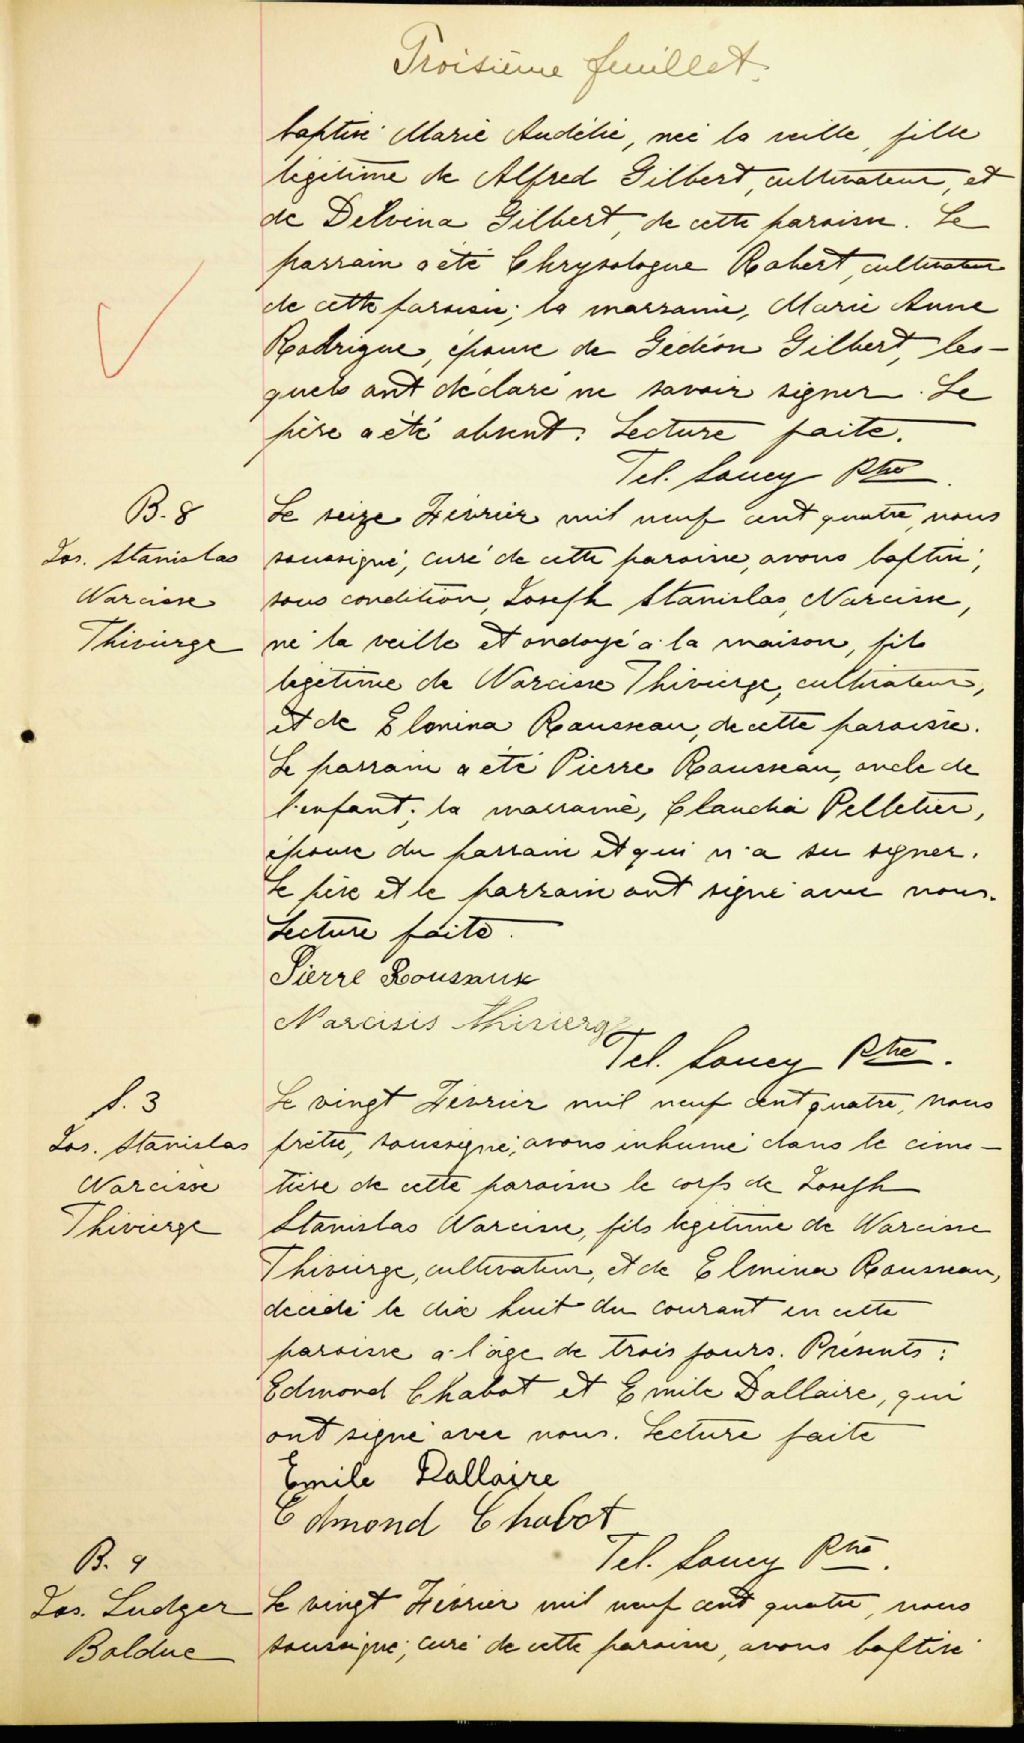 Troisième feuillet.
baptisé Marie Audélie, née la veille, fille
légitime de Alfred Gilbert, cultivateur, et
de Delvina Gilbert, de cette paroisse. Le
parrain a été Chrysologue Robert, cultivateur
de cette paroisse; la marraine, Marie Anne
Rodrigue, épouse de Gédéon Gilbert, les-
quels ont déclaré ne savoir signer. Le
père a été absent. Lecture faite.
Tel. Soucy Ptre.
B. 8
Jos. Stanislas
Narcisse
Thivierge
Le seize Février mil neuf cent quatre, nous
soussigné, curé de cette paroisse, avons baptisé,
sous condition, Joseph Stanislas, Narcisse,
né la veille et ondoyé à la maison, fils
légitime de Narcisse Thivierge, cultivateur,
et de Elmina Rousseau, de cette paroisse.
Le parrain a été Pierre Rousseau, oncle de
l'enfant; la marraine, Claudia Pelletier,
épouse du parrain et qui n'a su signer.
Le père et le parrain ont signé avec nous.
Lecture faite.
Pierre
Narcisis Thivierge
Tel. Soucy Ptre.
S. 3
Jos. Stanislas
Narcisse
Thivierge
Le vingt Février mil neuf cent quatre, nous
prêtre, soussigné, avons inhumé dans le cime-
tière de cette paroisse le corps de Joseph
Stanislas Narcisse, fils légitime de Narcisse
Thivierge, cultivateur, et de Elmina Rousseau,
décédé le dix huit du courant en cette
paroisse à l'âge de trois jours. Présents:
Edmond Chabot et Emile Dallaire, qui
ont signé avec nous. Lecture faite
Emile Dallaire
Edmond Chabot
Tel. Soucy Ptre.
B. 9
Jos. Ludger
Bolduc
Le vingt Février mil neuf cent quatre, nous
soussigné, curé de cette paroisse, avons baptisé